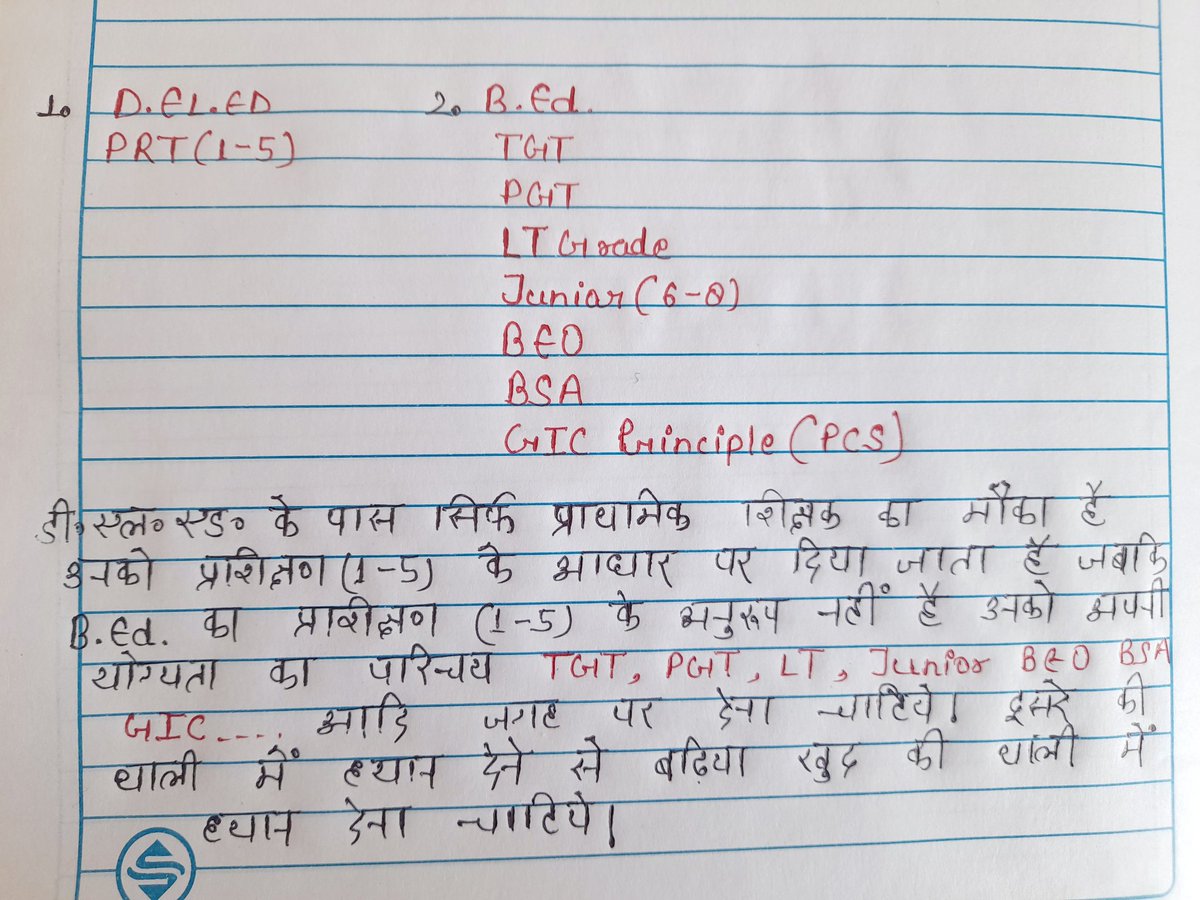 1. D.EL.ED 2. B.Ed.
PRT(1-5) TGT
PGT
LT Grade
Junior(6-8)
BEO
BSA
GIC Principle(PCS)
डी॰एल॰एड॰ के पास सिर्फ प्राथमिक शिक्षक का मौका है
उनको प्रशिक्षण (1-5) के आधार पर दिया जाता है जबकि
B.Ed. का प्रशिक्षण (1-5) के अनुरूप नहीं है उनको अपनी
योग्यता का परिचय TGT, PGT, LT, Junior BEO BSA
GIC.... आदि जगह पर देना चाहिये। दूसरे की
थाली में ध्यान देने से बढ़िया खुद की थाली में
ध्यान देना चाहिये।